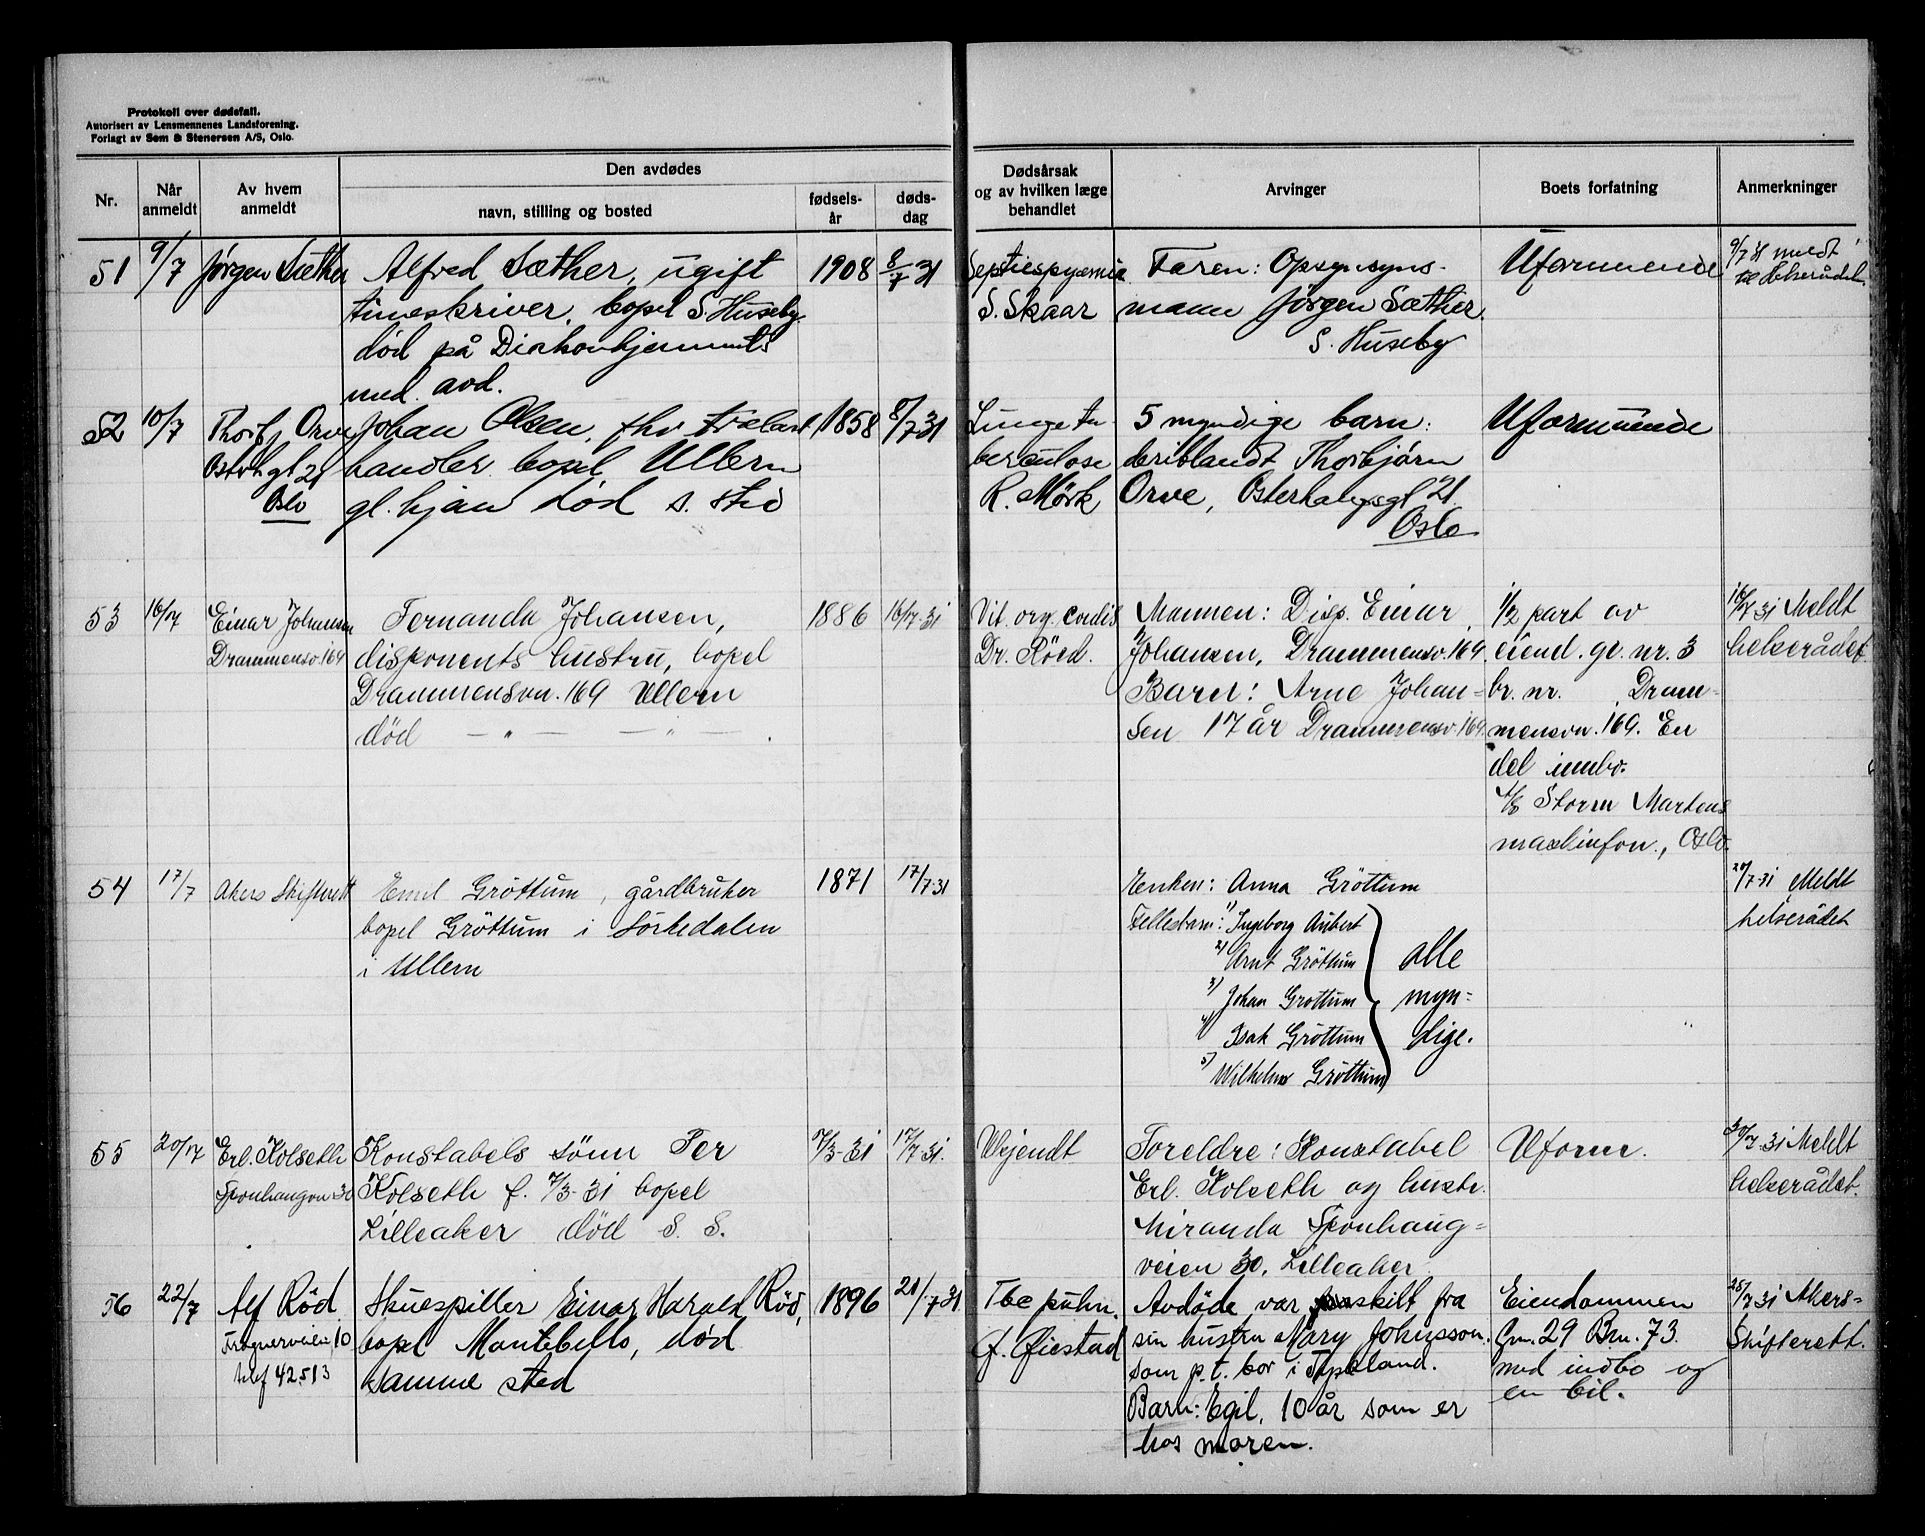 Protokoll over dødsfall.
Autorisert av Lensmennenes Landsforening.
Forlagt av Sem & Stenersen A/S, Oslo.
Nr.
Når
anmeldt
Av hvem
anmeldt
Den avdødes
navn, stilling og bosted
fødsels-
år
døds-
dag
Dødsårsak
og av hvilken læge
behandlet
Arvinger
Boets forfatning
Anmerkninger
51
9/7
Jørgen Sæther
Alfred Sæther, ugift
timeskriver, bopel S. Huseby.
død på Diakonhjemmets
med. avd.
1908
8/7-31
S. Skaar
Faren: Opsynsyns-
mann Jørgen Sæther.
S. Huseby
Uformuende
9/7 31 meldt
til helserådet
52
10/7
Thorbj Orve
gt 21
Oslo
Johan Olsen, fhv. trælast
handler bopel Ullern
gl.hjem død s. sted
1858
8/7 31
Lunge tu-
berculose
R. Mørk
5 myndige barn:
deriblandt Thorbjørn
Orve, gt 21.
Oslo
Uformuende
53
16/7
Einar Johansen
Drammensv. 169
Fernanda Johansen,
disponents hustru, bopel
Drammensvn. 169 Ullern
død — " — — " — .
1886
16/7-31
Vit. org. cordis
Dr. Röed.
Mannen: Disp. Einar
Johansen, Drammensv. 169.
Barn: Arne Johan=
sen 17 år Drammensv. 169.
1/2 part av
eiend. gr. nr. 3
br. nr. Dram=
mensvn. 169. En
del innbo.
A/S Storm Martens
maskinfon., Oslo.
16/7 31 Meldt
helserådet.
54
17/7
Akers Skifterett
Emil Gröttum, gårdbruker
bopel Gröttum i Sörkedalen
i Ullern
1871
17/7 31
Enken: Anna Gröttum
Fellesbarn: 1) Ingeborg Aubert
2) Arnt Gröttum
3) Johan Gröttum
4) Isak Gröttum
5) Wilhelm Gröttum
alle
myn=
dige.
20/7 31 Meldt
helserådet
55
20/7
Erl. Kolseth
Sponhaugvn 30
Konstabels sönn Per
Kolseth f. 7/3-31 bopel
Lilleaker död S. S.
7/3-31
17/7-31.
Ukjendt
Foreldre: Konstabel
Erl. Kolseth og hustr.
Miranda Sponhaug=
veien 30, Lilleaker
Uform.
20/7 31 Meldt
helserådet.
56
22/7
Alf Röd
Frognerveien 10
telef 42513
Skuespiller Einar Harald Röd,
bopel Montebello, död
samme sted
1896
21/7 31
Tbc pulm.
Avdöde var skilt fra
sin hustru Mary Johnsson.
som p.t. bor i Tyskland.
Barn: Egil, 10 år som er
hos moren.
Eiendommen
Gn. 29 Bn. 73.
med indbo og
en bil.
25/7 31 Akers=
Skifterett.